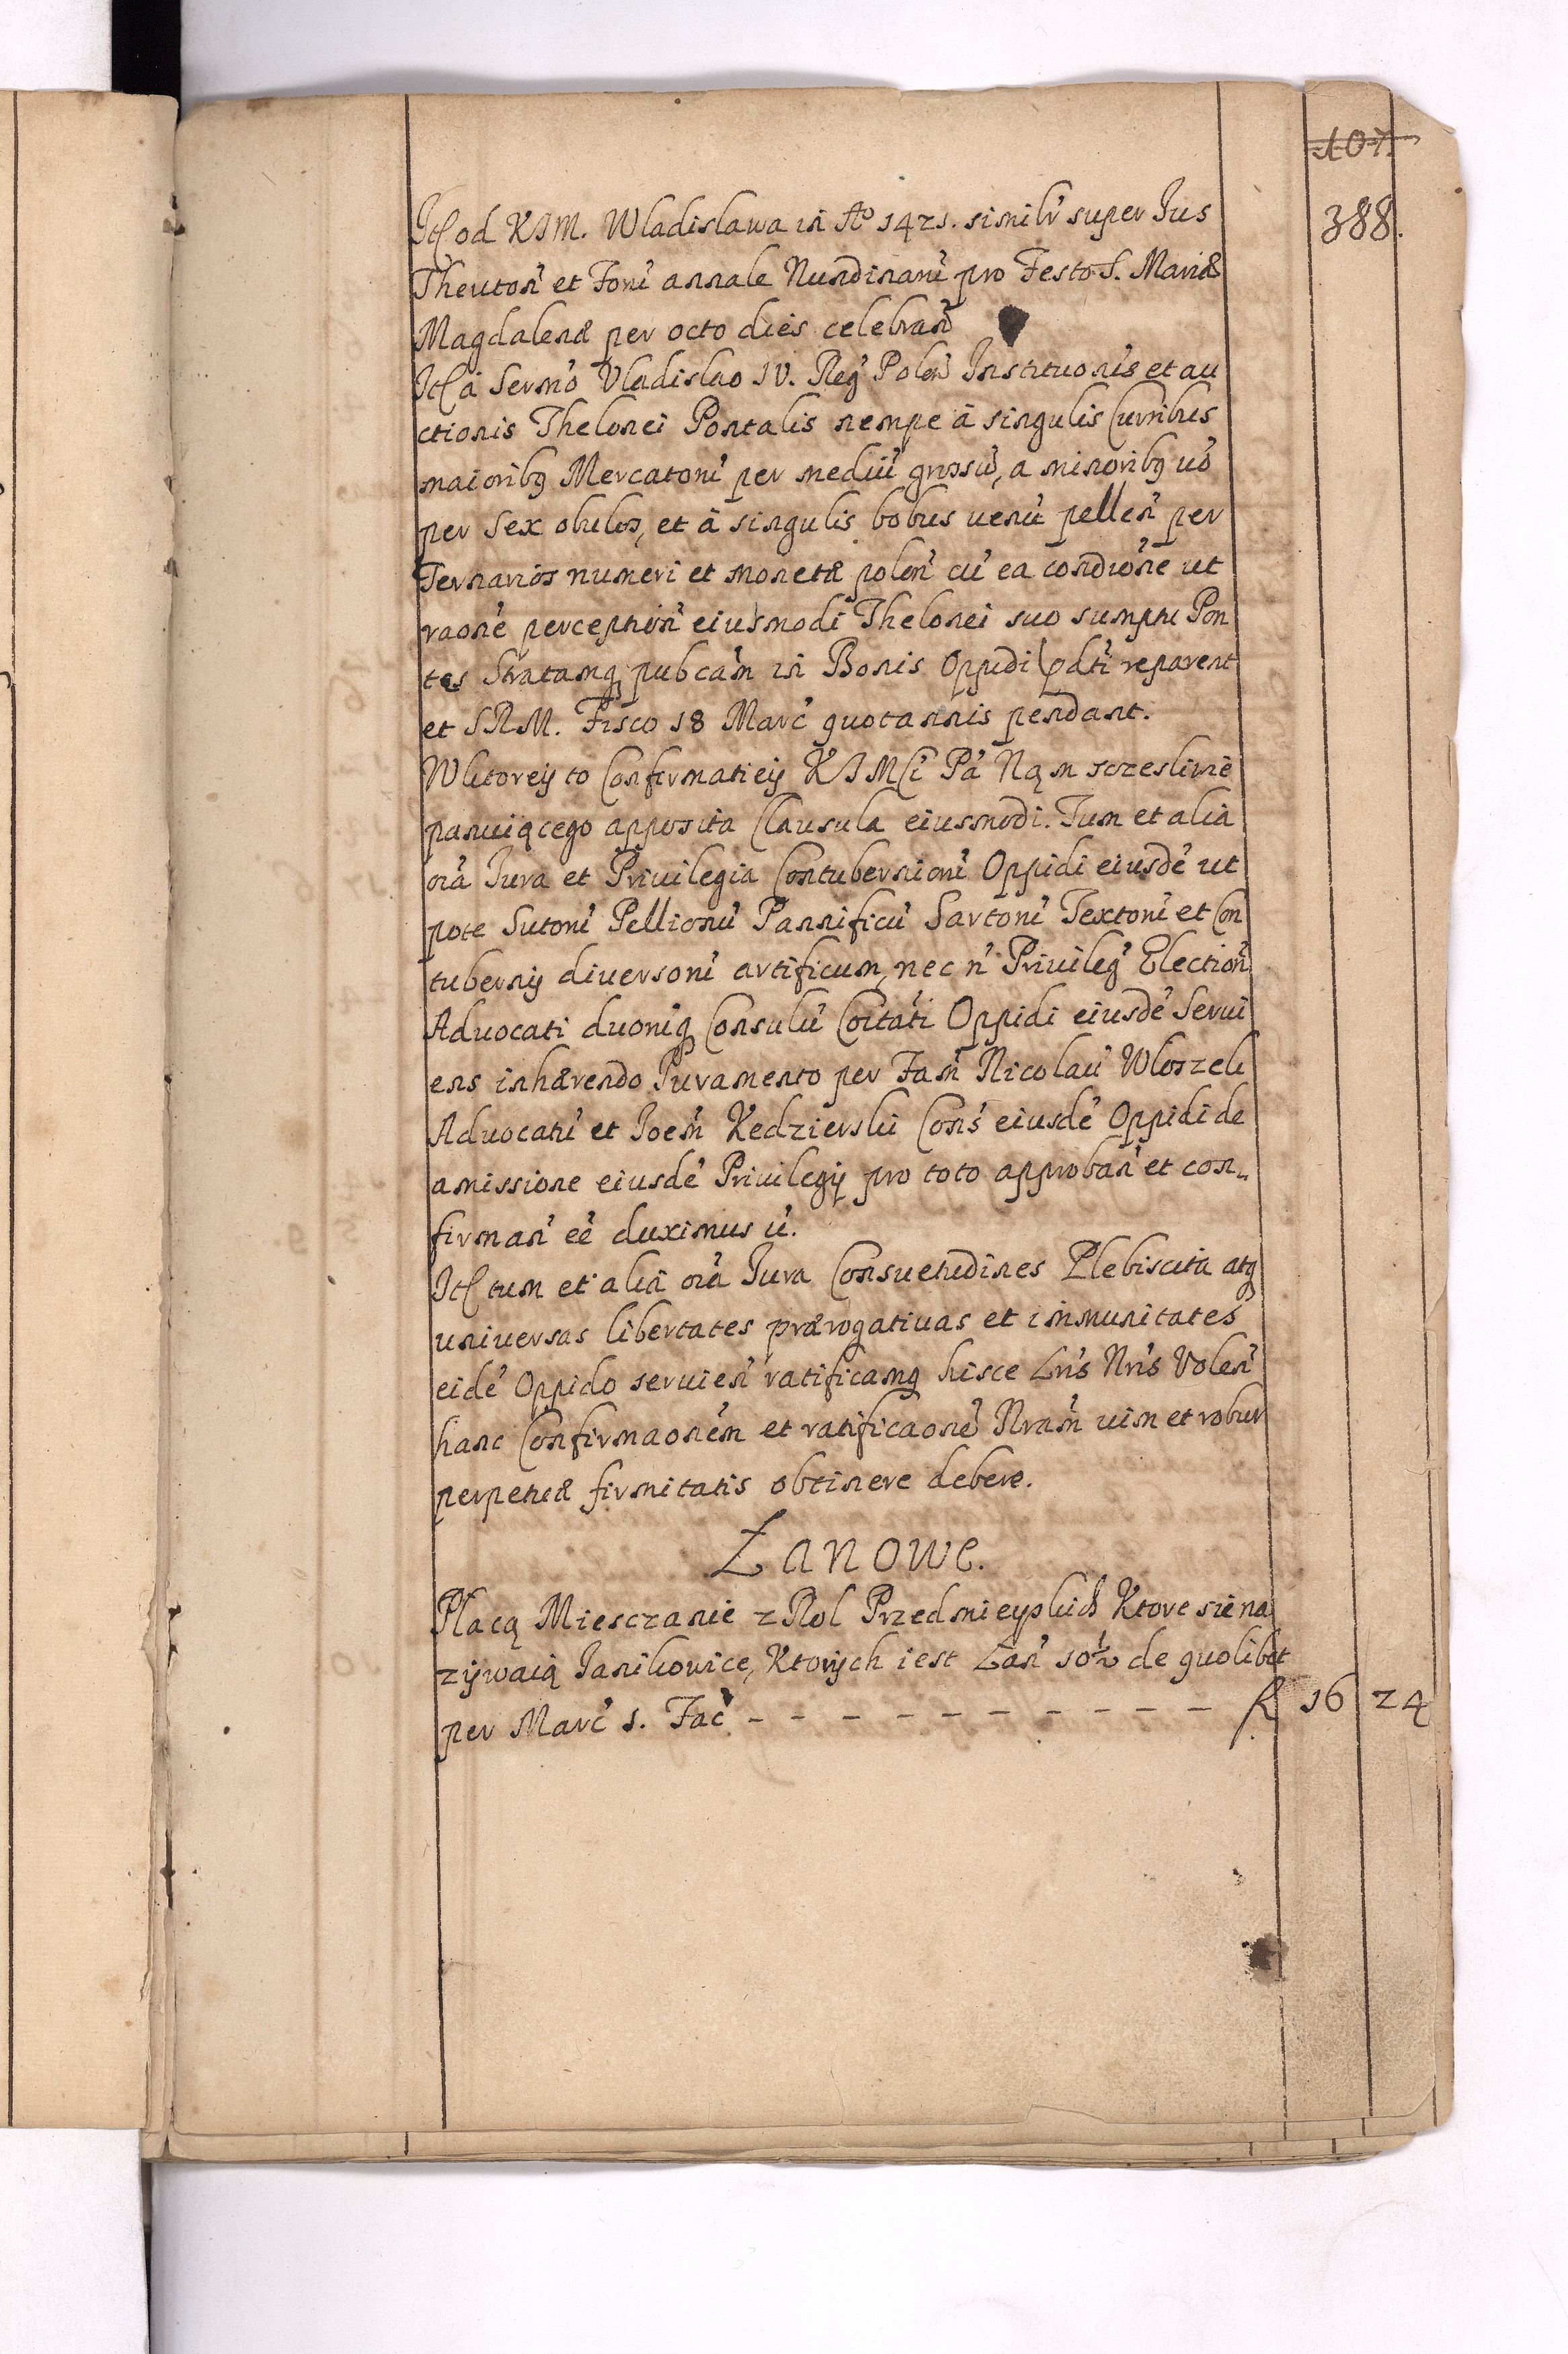 107.
388.
Itȩ od KJM. Wladislawa in Ao 1421. similr̃ super Jus
Theuton̉ et Forũ annale Nundinarũ pro Festo S. Mariæ
Magdalenæ per octo dies celebrañ
Itȩ à Sermo̓ Vladislao IV. Reg̓ Polon̓ Institu̓onis et au
ctionis Thelonei Pontalis nempe à singulis Curribus
maioribq Mercatorũ per mediũ grossũ, a minoribq uo̓
per Sex obulos, et à singulis bobus uenũ pellen̓ per
Ternarios numeri et monetæ polon̓ cũ ea condio̓ne ut
rao̓ne perception̓ eiusmodi Thelonei suo sumptu Pon
tes Stratamq pubcam̓ in Bonis Oppidi pdti̓ reparent
et SRM. Fisco 18 Marc̓ quotannis pendant.
W ktorey to Confirmatiey KJMCi Pa̓ Nąm sczesliwie
panuiącego apposita Clausula eiusmodi. Tum et alia
oia̓ Jura et Priuilegia Contuberniorũ Oppidi eiusde̓ ut
pote Sutorũ Pellionũ Pannificũ Sartorũ Textorũ et Con
tubernij diuersorũ artificum, nec n̓ Priuileg̓ Election̓
Aduocati duorũq Consulũ Coitati̓ Oppidi eiusde̓ Serui
ens inhærendo Juramento per Fam̓ Nicolaũ Wloszek
Aduocatũ et Joem̓ Kedzierski Cons̓ eiusde̓ Oppidi de
amissione eiusde̓ Priuilegij pro toto approban̓ et con„
firman̓ ee̓ duximus ũ.
Itȩ tum et alia oia̓ Jura Consuetudines Plebiscita atq
uniuersas libertates prærogatiuas et immunitates
eide̓ Oppido seruien̓ ratificamq hisce Lris̓ Nris̓ Volen̓
hanc Confirmao̓nem et ratificao̓ne Nram̓ uim et robur
perpetuæ firmitatis obtinere debere.
Łanowe.
Płacą Miesczanie z Rol Przedmieyskich Ktore sie na
zÿwaią Janikowice, Ktorÿch iest Łan̓ 10½ de quolibet
per Marc̓ 1. Fac̓ - - - - - - - - - - - f. 16 24